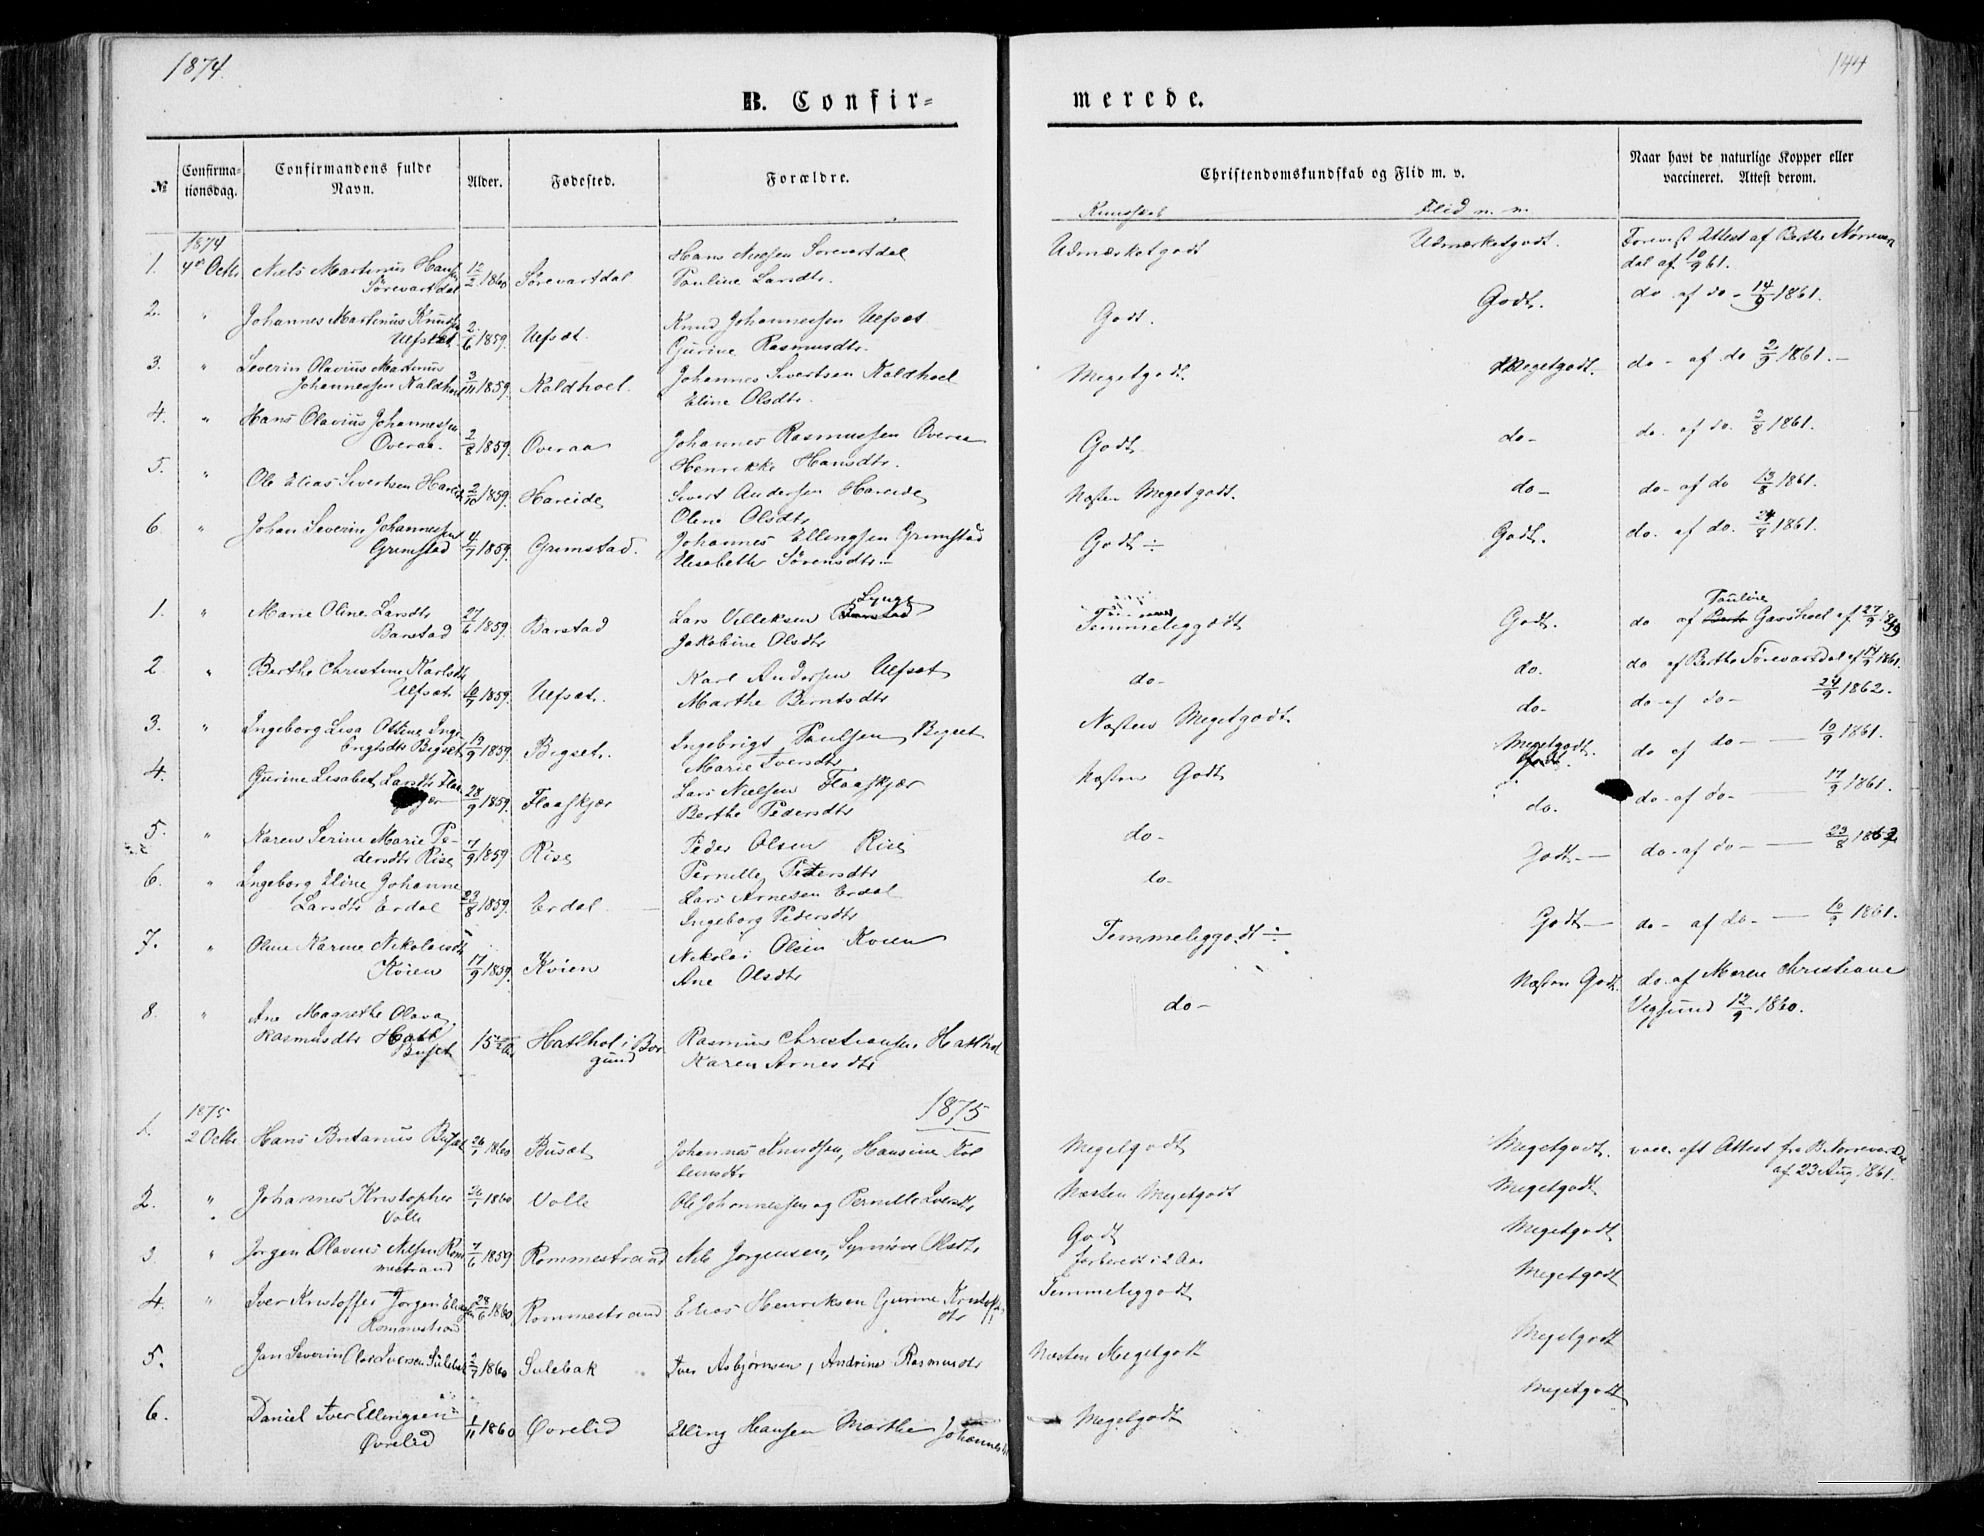 1874.
144
B. Confir=
merede.
№
Confirma-
tionsdag.
Confirmandens fulde
Navn.
Alder.
Fødested.
Forældre.
Christendomskundskab og Flid m. v.
Naar havt de naturlige Kopper eller
vaccineret. Attest derom.
Kundskab Flid m. m.
1874
1. 4de Octbr Niels Martinus Hansen 12/2 1860 Sörevartdal Hans Nielsen Sorevartdal Udmærketgodt Udmærketgodt. Forevist Attest af Berthe Nörrevar
Sörevartdal Pauline Larsdtr. dal af 10/9 61.
2. " Johannes Martinus Knudsen 2/6 1859 Ulfsæt Knud Johannessen Ulfsæt Godt. Godt. do af do 14/9 1861.
Ulfsæt Gurine Rasmusdtr.
3. " Severin Olavius Martinus Johannes Sivertsen Kaldhoel Megetgodt. Megetgodt. do - af do 2/9 1861.-
Johannessen Kaldhoel 3/11 1859. Kaldhoel. Eline Olsdtr.
4. " Hans Olavius Johannessen Johannes Rasmussen Overaa Godt. do- do. af do. 2/8 1861.
Overaa. 2/8 1859. Overaa Henrikke Hansdtr.
5. " Ole Elias Sivertsen Hareide 2/10 1859. Hareide Sivert Andersen Hareide Næsten Megetgodt. do- do- af do 13/8 1861.
Oline Olsdtr
6. " Johan Severin Johannessen Johannes Ellingsen Grimstad Godt ÷ Godt. do. af do. 24/8 1861.
Grimstad 4/7 1859. Grimstad. Elisabeth Sörensdtr.-
1. " Marie Oline Larsdtr 27/6 1859. Barstad Lars Villeksen Barstad Lynge Temmeliggodt Godt. do af Berthe Pauline Gaashoel af 27/9
Barstad Jakobine Olsdtr
2 " Berthe Christine Karlsdtr Karl Andersen Ulfsæt do- do. do af Berthe Sörevartdal af 14/9 1861.
Ulfsæt 10/7 1859. Ulfsæt. Marthe Berntsdtr
do- do- af do- 24/9 1862.
3. " Ingeborg Lisa Oline Inge Ingebrigt Paulsen Bigset Næsten Megetgodt. Megetgodt. do af do- 10/9 1861.
brigtsdtr Bigset 13/9 1859. Bigset. Marie Iversdtr Godt.
4. " Gurine Lisabet Larsdtr Flaa 28/9 1859. Flaaskjær Lars Nielsen Flaaskjær Næsten Godt do. do- af do- 17/9 1861.
skjær Berthe Pedersdtr
5. " Karen Serine Marie Pe- 7/9 1859. Rise Peder Olsen Rise do- Godt- do- af do- 23/8 1862
dersdtr Rise Pernille Petersdtr
6. " Ingeborg Eline Johanne Lars Arnesen Erdal do- Godt- do- af do- 10/9 1861.
Larsdtr Erdal 29/8 1859. Erdal. Ingeborg Pedersdtr
7. " Oline Karine Nikolaisdtr Nikolai Olsen Kvien Temmeliggodt ÷ Næsten Godt. do. af Maren Christiane
Kvien 17/9 1859. Kvien Ane Olsdtr Vegsund 12/9 1860.
8. " Ane Magrethe Olava do-
Rasmusdtr Hatl 15 Hatlhol i Bor Rasmus Christiansen Hatlhol
Buset gund Karen Arnesdtr
1875
1875
1. 2 Octbr Hans Britanus Busæt 26/1 1860 Busæt Johannes Knudsen, Hansine Kol Megetgodt Megetgodt. vacc. eft Attest fra B. Nörrevardal
bensdtr af 23 Aug. 1861.
2. " Johannes Kristopher 1860 Volle Ole Johannessen og Pernille Iversdtr Næsten Megetgodt Megetgodt
Volle
3 " Jorgen Olavius Nilsen Rom 7/6 1859 Rommestrand Nils Jorgensen, Synnöve Olsdtr Godt Megetgodt
mestrand forberedt i 2 Aar
4. " Iver Kristoffer Jorgen Eliassen 28/6 1860 Rommestrand Elias Henriksen Gurine Kristoffer Temmeliggodt Megetgodt
Rommestrand dtr
5. Jan Severin Olai Iversen Sulebak 2/7 1860 Sulebak Iver Asbjørnsen, Andrine Rasmusdtr Næsten Megetgodt Megetgodt
6. Daniel Iver Ellingsen 1/11 1860 Øvrelid Elling Hansen Marthe Johannesdtr Megetgodt Megetgodt
Øvrelid